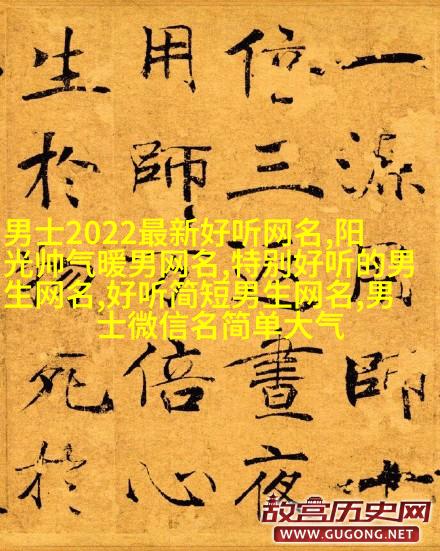 一源用師十
倍三返晝夜
用師萬倍心
生於物死於
男士2022最新好听网名,阳
光帅气暖男网名,特别好听的男
生网名,好听简短男生网名,男
士微信名简单大气
故宫历史网
WWW.GUGONG.NET